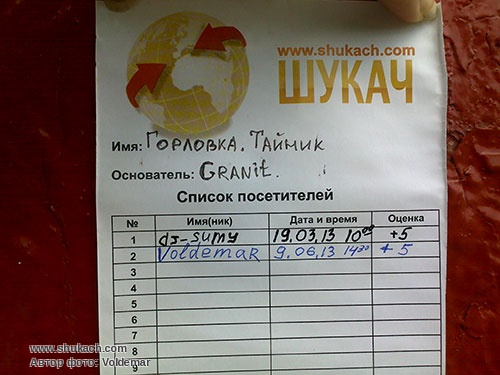 www.shukach.com
ШУКАЧ
Имя: Горловка. Таймик
Основатель: GRANit.
Список посетителей
№ Имя(ник) Дата и время Оценка
1 dj-sumy 19.03.13 10⁰⁰ +5
2 Voldemar 9.06.13 14³⁰ +5
3
4
5
6
7
8
9
www.shukach.com
Автор фото: Voldemar